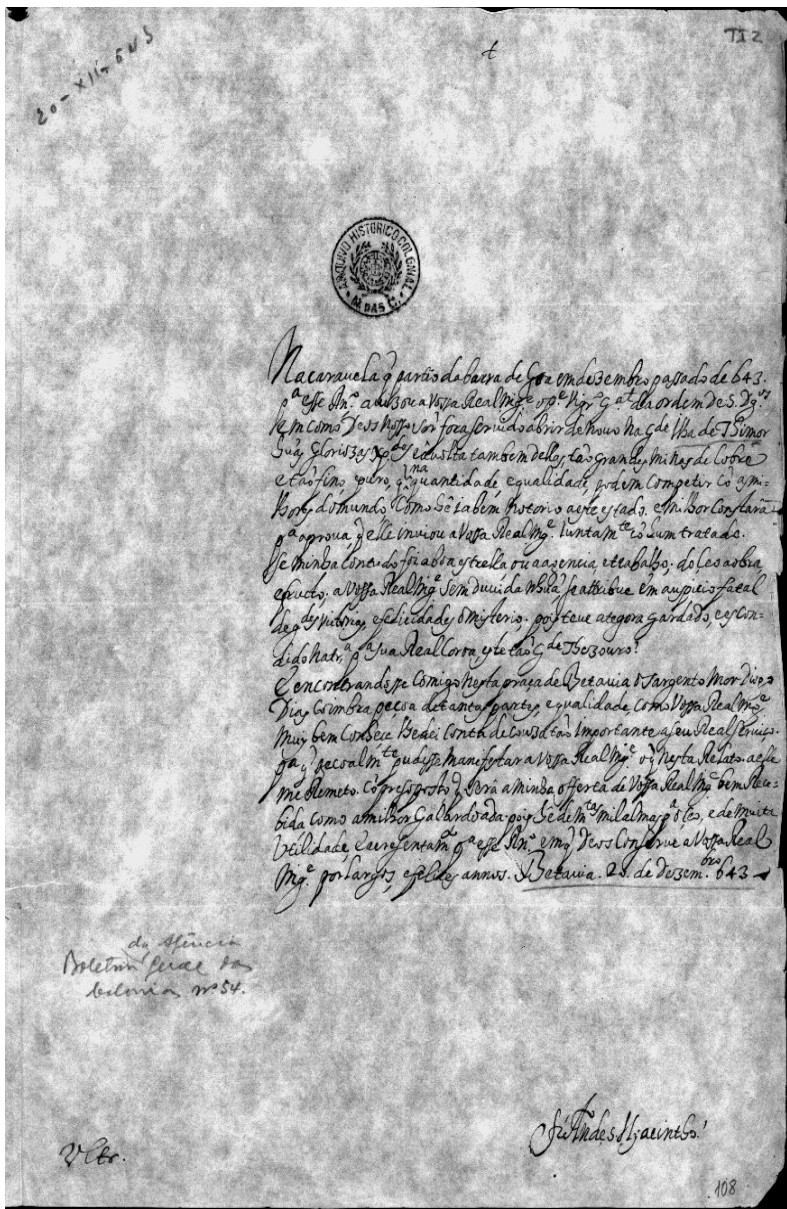 TI 2
20-XII-643
ARQUIVO HISTORICO COLONIAL
M. DAS C.
Na carauela q̃ partio da barra de Goa em dezembro passado de 643.
pª esse Rnº. auizou a Vossa Real Mgᵉ o pᵉ Vigrº Gᵃˡ da ordem de S. Dgᵒˢ
em como Deos nosso sõr fora seruido abrir de nouo na gᵈᵉ Ilha de Thimor
suas gloriozas e a volta tambem dellas tão grandes minas de cobre
e tão fino, e puro, q̃ na quantidade, e qualidade, podem competir cõ as mi-
lhores do mundo. Como hé já bem notorio a este estado. e milhor constará
pª a proua, q̃ elle inuiou a Vossa Real Mgᵉ. Juntamᵗᵉ cõ hum tratado.
Se minha contudo foi a boa estrella ou a agencia, e trabalho; do Ceo a obra,
e fructo. a Vossa Real Mgᵉ sem duuida se attribue em auspicio fatal
de gᵈᵉˢ victorias, e felicidades o misterio. pois teue ategora gardado, e escon-
dido na trª. pª sua Real Coroa, este tão gᵈᵉ Thezouro.
E encontrandosse comigo nesta praça de Betauia o Sargento Mor Diogo
Dias Coimbra peçoa de tantas partes, e qualidade, como Vossa Real Mgᵉ
muy bem conhece lhe dei conta de couza tão importante a seu Real seruiço.
pª q̃ pecoalmᵗᵉ pudesse manifestar a Vossa Real Mgᵉ o q̃ nesta relato. a elle
me remeto. cõ presoposto q̃ será a minha offerta de Vossa Real Mgᵉ bem rece-
bida como a milhor galardoada pois hé de mᵗᵃˢ mil almas pª o Ceo, e de muita
Utilidade, e acresentamᵗᵒ pª esse Rnº. em q̃ Deos conserue a Vossa Real
Mgᵉ. por largos, e felices annos. Betauia. 20. de Dezemᵇʳᵒ 643
da Agência
Boletim Geral das
Colonias nº 54.
Hyacintho.
108